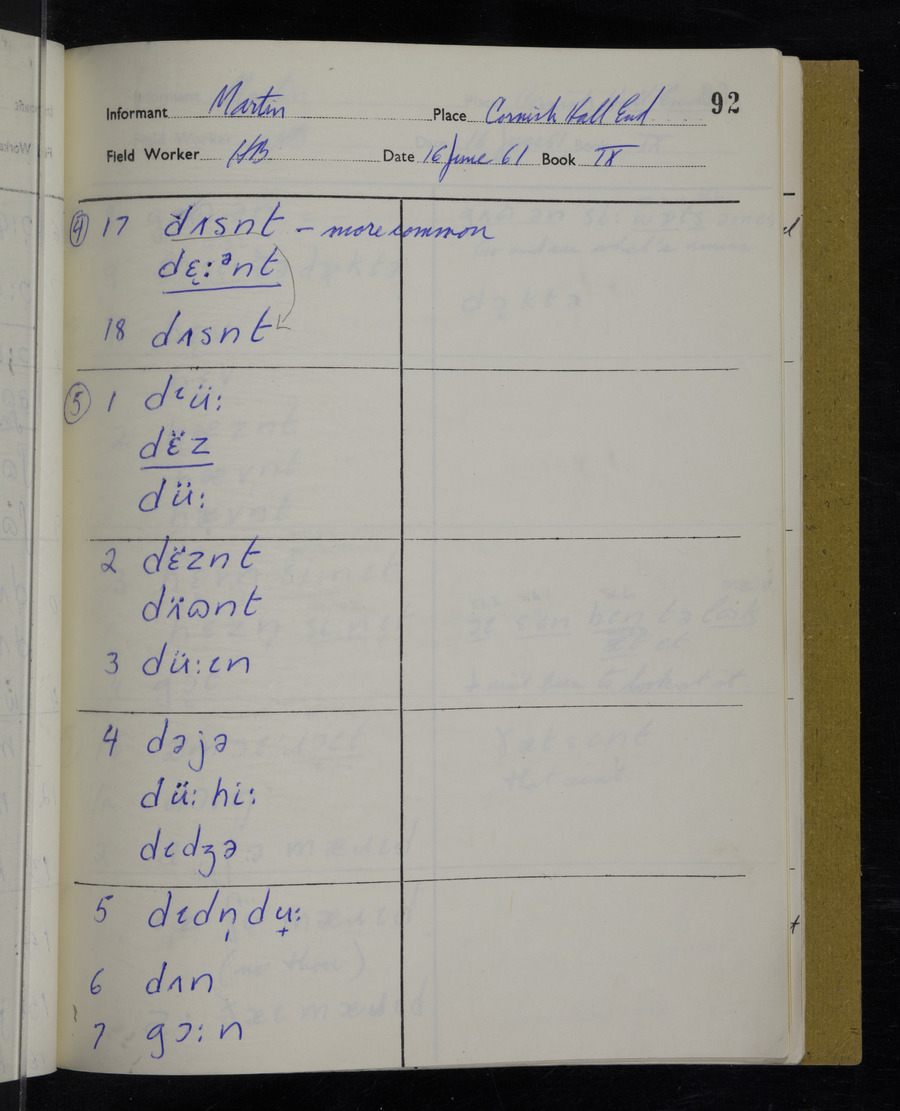 92
Informant Martin Place Cornish Hall End
Field Worker HB Date 16 June 61 Book IX
④ 17 dʌsnt – more common
dɛ̨:ᵊnt
18 dʌsnt
⑤ 1 dᶥü:
dɛ̈z
dü:
2 dɛ̈znt
dʌ̈ɷnt
3 dü:ɩn
4 dəjə
dü: hi:
dɩdʒə
5 dɩdn̩ du̟:
6 dʌn
7 gɔ:n